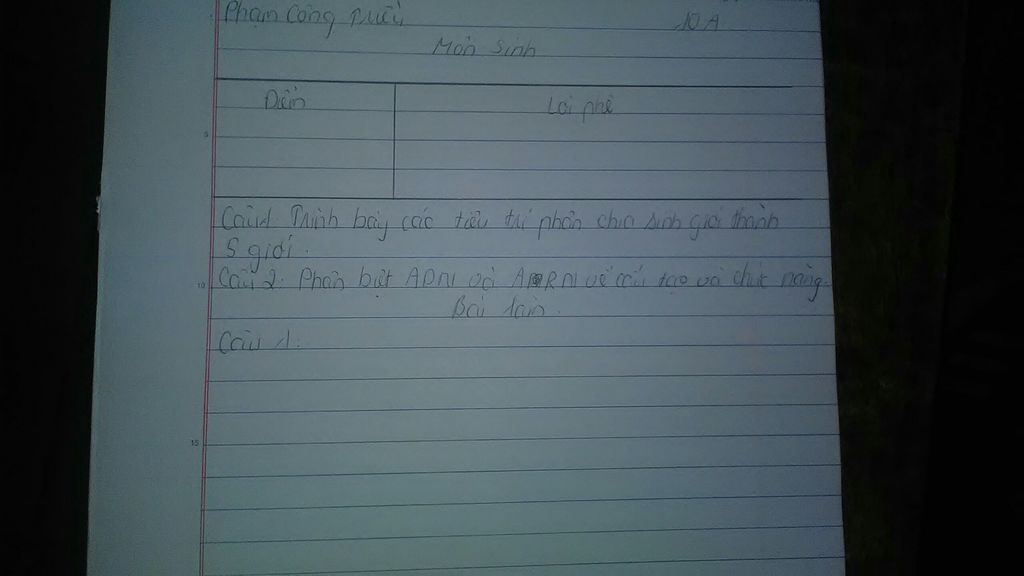 Phạm Công 10A
Môn Sinh
Điểm Lời phê
Câu 1 Trình bày các tiêu trí phân chia sinh giới thành
5 giới.
Câu 2: Phân biệt ADN và ARN về cấu tạo và chức năng.
Bài làm.
Câu 1:
5
10
15